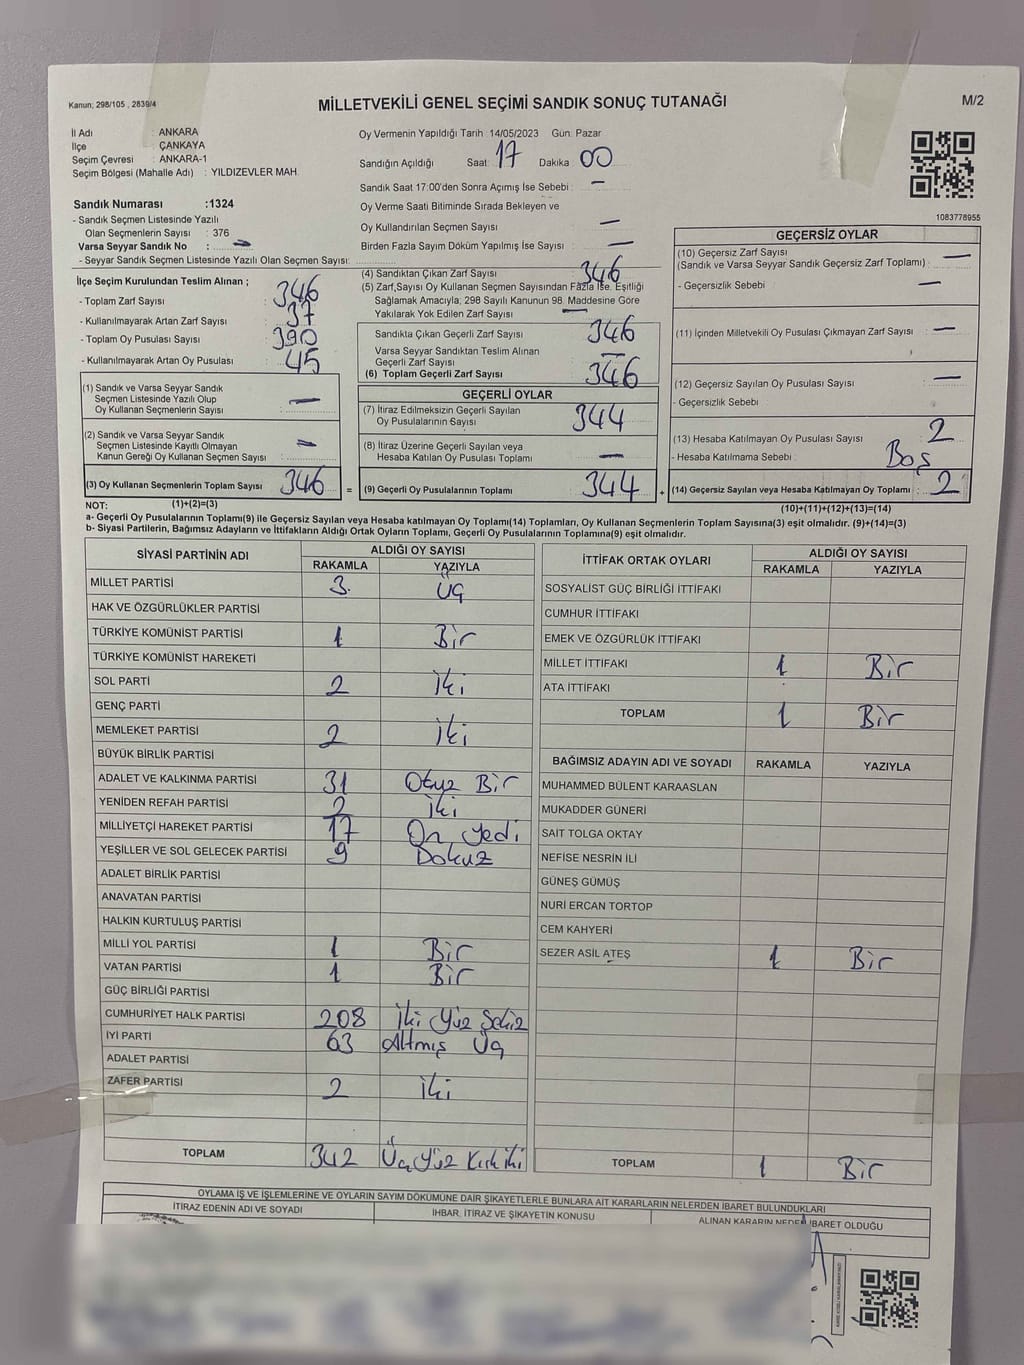 Kanun; 298/105 , 2839/4
MİLLETVEKİLİ GENEL SEÇİMİ SANDIK SONUÇ TUTANAĞI
M/2
İl Adı : ANKARA
İlçe : ÇANKAYA
Seçim Çevresi : ANKARA-1
Seçim Bölgesi (Mahalle Adı) : YILDIZEVLER MAH.
Oy Vermenin Yapıldığı Tarih :14/05/2023 Gün: Pazar
Sandığın Açıldığı Saat: 17 Dakika 00
Sandık Saat 17:00'den Sonra Açımış İse Sebebi : —
Oy Verme Saati Bitiminde Sırada Bekleyen ve
Oy Kullandırılan Seçmen Sayısı —
Birden Fazla Sayım Döküm Yapılmış İse Sayısı : —
1083778955
Sandık Numarası :1324
- Sandık Seçmen Listesinde Yazılı
Olan Seçmenlerin Sayısı : 376
Varsa Seyyar Sandık No : —
- Seyyar Sandık Seçmen Listesinde Yazılı Olan Seçmen Sayısı:
İlçe Seçim Kurulundan Teslim Alınan ;
- Toplam Zarf Sayısı : 346
- Kullanılmayarak Artan Zarf Sayısı : 37
- Toplam Oy Pusulası Sayısı : 390
- Kullanılmayarak Artan Oy Pusulası : 45
(1) Sandık ve Varsa Seyyar Sandık
Seçmen Listesinde Yazılı Olup
Oy Kullanan Seçmenlerin Sayısı : —
(2) Sandık ve Varsa Seyyar Sandık
Seçmen Listesinde Kayıtlı Olmayan
Kanun Gereği Oy Kullanan Seçmen Sayısı : —
(3) Oy Kullanan Seçmenlerin Toplam Sayısı 346
=
(4) Sandıktan Çıkan Zarf Sayısı 346
(5) Zarf,Sayısı Oy Kullanan Seçmen Sayısından Fazla İse, Eşitliği
Sağlamak Amacıyla; 298 Sayılı Kanunun 98. Maddesine Göre
Yakılarak Yok Edilen Zarf Sayısı : —
Sandıkta Çıkan Geçerli Zarf Sayısı 346
Varsa Seyyar Sandıktan Teslim Alınan
Geçerli Zarf Sayısı —
(6) Toplam Geçerli Zarf Sayısı 346
GEÇERLİ OYLAR
(7) İtiraz Edilmeksizin Geçerli Sayılan
Oy Pusulalarının Sayısı 344
(8) İtiraz Üzerine Geçerli Sayılan veya
Hesaba Katılan Oy Pusulası Toplamı —
(9) Geçerli Oy Pusulalarının Toplamı 344
+
GEÇERSİZ OYLAR
(10) Geçersiz Zarf Sayısı
(Sandık ve Varsa Seyyar Sandık Geçersiz Zarf Toplamı) : —
- Geçersizlik Sebebi : —
(11) İçinden Milletvekili Oy Pusulası Çıkmayan Zarf Sayısı : —
(12) Geçersiz Sayılan Oy Pusulası Sayısı : —
- Geçersizlik Sebebi :
(13) Hesaba Katılmayan Oy Pusulası Sayısı : 2
- Hesaba Katılmama Sebebi : Boş
(14) Geçersiz Sayılan veya Hesaba Katılmayan Oy Toplamı : 2
NOT: (1)+(2)=(3)
(10)+(11)+(12)+(13)=(14)
a- Geçerli Oy Pusulalarının Toplamı(9) ile Geçersiz Sayılan veya Hesaba katılmayan Oy Toplamı(14) Toplamları, Oy Kullanan Seçmenlerin Toplam Sayısına(3) eşit olmalıdır. (9)+(14)=(3)
b- Siyasi Partilerin, Bağımsız Adayların ve İttifakların Aldığı Ortak Oyların Toplamı, Geçerli Oy Pusulalarının Toplamına(9) eşit olmalıdır.
SİYASİ PARTİNİN ADI ALDIĞI OY SAYISI
RAKAMLA YAZIYLA
MİLLET PARTİSİ 3 Üç
HAK VE ÖZGÜRLÜKLER PARTİSİ
TÜRKİYE KOMÜNİST PARTİSİ 1 Bir
TÜRKİYE KOMÜNİST HAREKETİ
SOL PARTİ 2 İki
GENÇ PARTİ
MEMLEKET PARTİSİ 2 İki
BÜYÜK BİRLİK PARTİSİ
ADALET VE KALKINMA PARTİSİ 31 Otuz Bir
YENİDEN REFAH PARTİSİ 2 İki
MİLLİYETÇİ HAREKET PARTİSİ 17 On yedi
YEŞİLLER VE SOL GELECEK PARTİSİ 9 Dokuz
ADALET BİRLİK PARTİSİ
ANAVATAN PARTİSİ
HALKIN KURTULUŞ PARTİSİ
MİLLİ YOL PARTİSİ 1 Bir
VATAN PARTİSİ 1 Bir
GÜÇ BİRLİĞİ PARTİSİ
CUMHURİYET HALK PARTİSİ 208 İki Yüz Sekiz
İYİ PARTİ 63 Altmış Üç
ADALET PARTİSİ
ZAFER PARTİSİ 2 İki
TOPLAM 342 Üç Yüz Kırk İki
İTTİFAK ORTAK OYLARI ALDIĞI OY SAYISI
RAKAMLA YAZIYLA
SOSYALİST GÜÇ BİRLİĞİ İTTİFAKI
CUMHUR İTTİFAKI
EMEK VE ÖZGÜRLÜK İTTİFAKI
MİLLET İTTİFAKI 1 Bir
ATA İTTİFAKI
TOPLAM 1 Bir
BAĞIMSIZ ADAYIN ADI VE SOYADI RAKAMLA YAZIYLA
MUHAMMED BÜLENT KARAASLAN
MUKADDER GÜNERİ
SAİT TOLGA OKTAY
NEFİSE NESRİN İLİ
GÜNEŞ GÜMÜŞ
NURİ ERCAN TORTOP
CEM KAHYERİ
SEZER ASİL ATEŞ 1 Bir
TOPLAM 1 Bir
OYLAMA İŞ VE İŞLEMLERİNE VE OYLARIN SAYIM DÖKÜMÜNE DAİR ŞİKAYETLERLE BUNLARA AİT KARARLARIN NELERDEN İBARET BULUNDUKLARI
İTİRAZ EDENİN ADI VE SOYADI İHBAR, İTİRAZ VE ŞİKAYETİN KONUSU ALINAN KARARIN NEDEN İBARET OLDUĞU